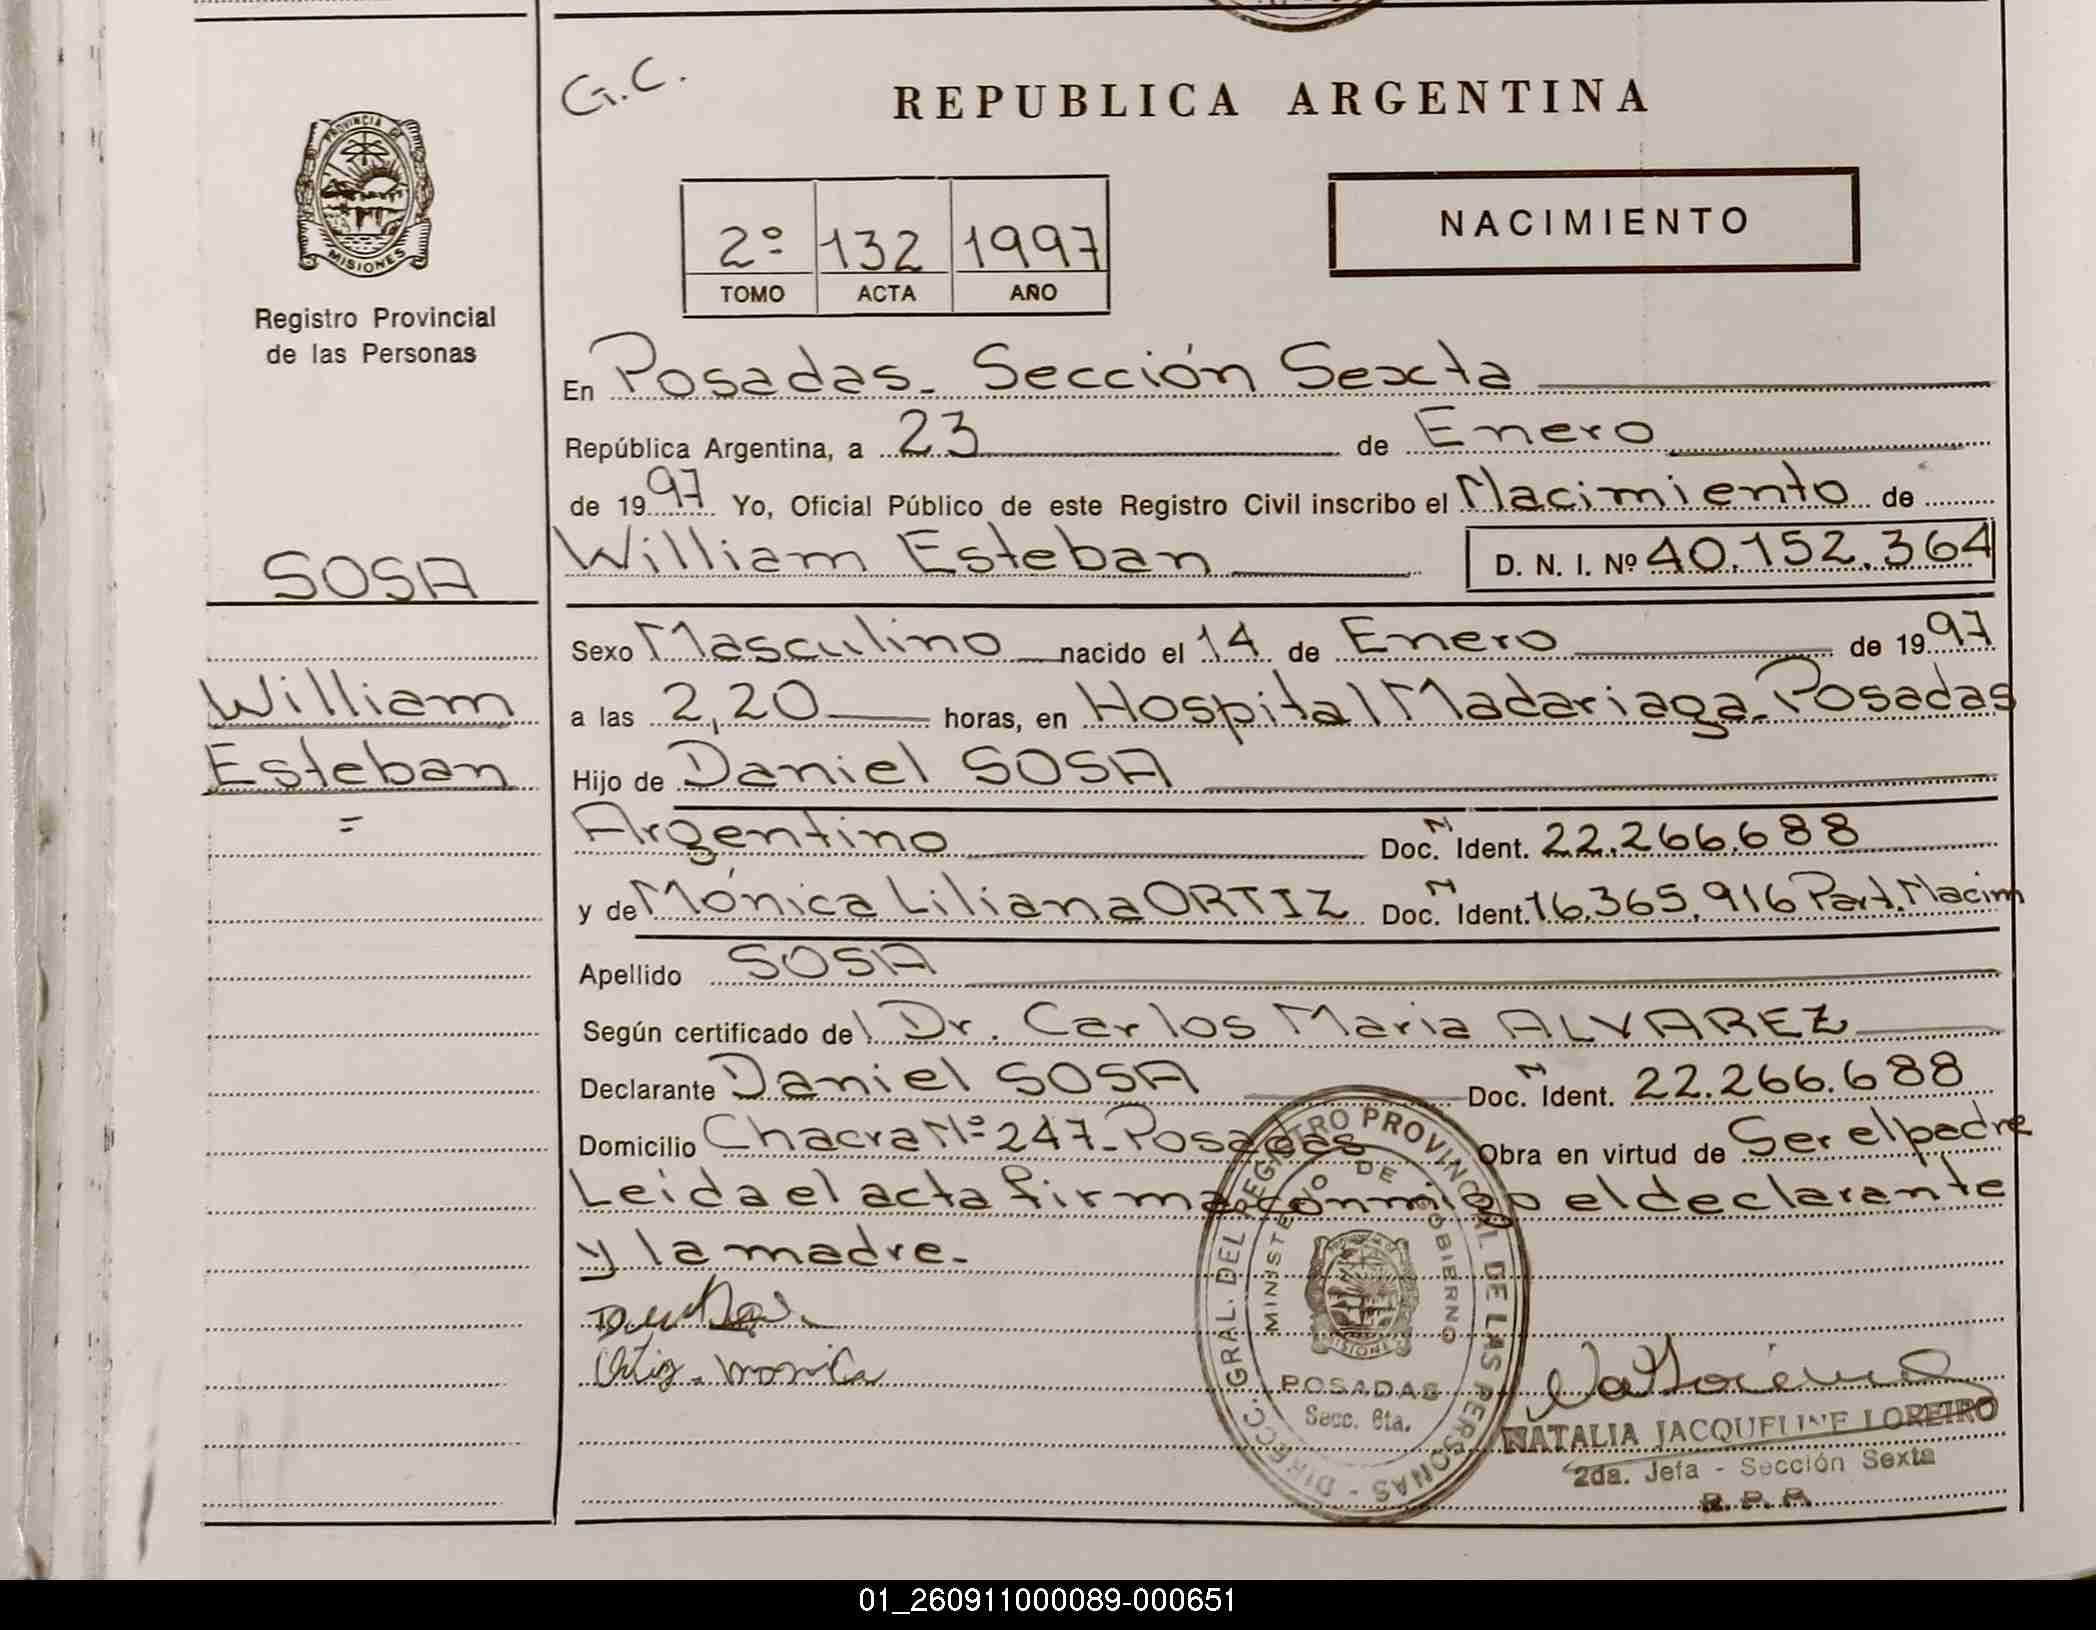 G.C.
REPUBLICA ARGENTINA
PROVINCIA DE
MISIONES
Registro Provincial
de las Personas
2º 132 1997
TOMO ACTA AÑO
NACIMIENTO
En Posadas - Sección Sexta
República Argentina, a 23 de Enero
de 1997 Yo, Oficial Público de este Registro Civil inscribo el Nacimiento de
William Esteban D. N. I. Nº 40.152.364
SOSA
William
Esteban
=
Sexo Masculino nacido el 14 de Enero de 1997
a las 2,20 horas, en Hospital Madariaga - Posadas
Hijo de Daniel SOSA
Argentino Doc. N Ident. 22.266.688
y de Mónica Liliana ORTIZ Doc. N Ident. 16.365.916 Part. Nacim
Apellido SOSA
Según certificado del Dr. Carlos Maria ALVAREZ
Declarante Daniel SOSA Doc. N Ident. 22.266.688
Domicilio Chacra Nº 247 - Posadas Obra en virtud de Ser el padre
Leída el acta firma conmigo el declarante
y la madre -
Ortiz - Monica
DIRECC. GRAL. DEL REGISTRO PROVINCIAL DE LAS PERSONAS -
MINISTERIO DE GOBIERNO
MISIONES
POSADAS
Secc. 6ta.
NATALIA JACQUELINE LOREIRO
2da. Jefa - Sección Sexta
R. P. P.
01_260911000089-000651